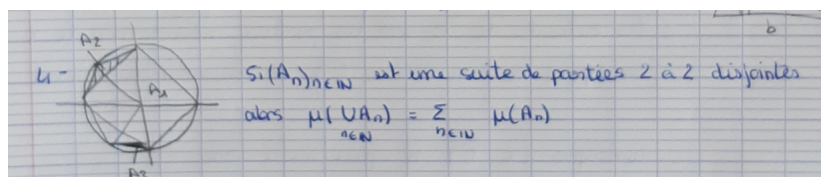 b
A2
4- A1 Si (An)n∈ℕ est une suite de parties 2 à 2 disjointes
alors μ(∪An) = Σ μ(An)
n∈ℕ n∈ℕ
A3